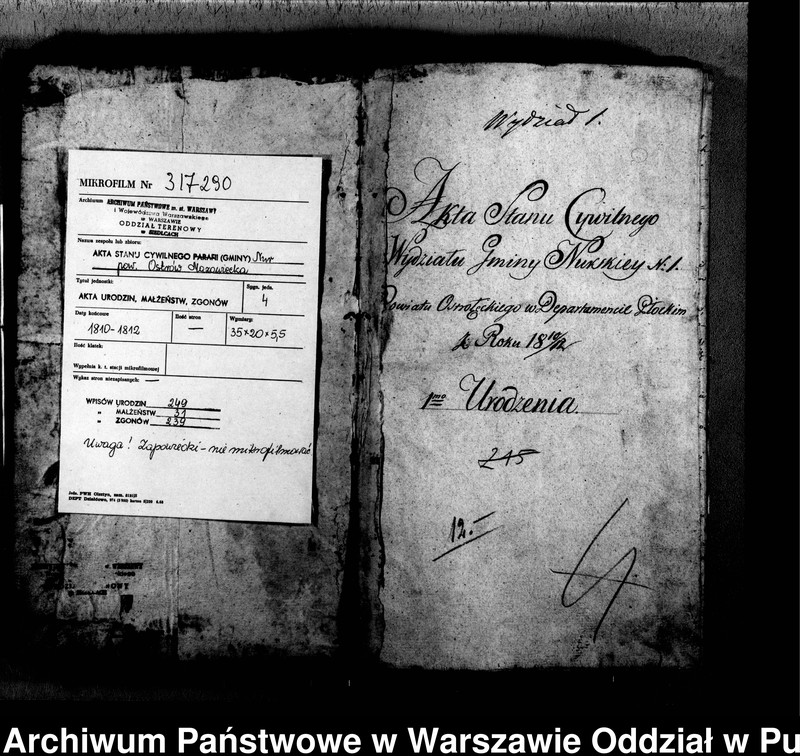 MIKROFILM Nr 317290
Archiwum ARCHIWUM PAŃSTWOWE m. st. WARSZAWY
i Województwa Warszawskiego
w WARSZAWIE
ODDZIAŁ TERENOWY
w SIEDLCACH
Nazwa zespołu lub zbioru:
AKTA STANU CYWILNEGO PARAFII (GMINY) Nur
pow. Ostrów Mazowiecka
Tytuł jednostki:
AKTA URODZIN, MAŁŻEŃSTW, ZGONÓW
Sygn. jedn.
4
Daty końcowe
1810-1812
Ilość stron
—
Wymiary:
35×20×5,5
Ilość klatek:
Wypełnia k. t. stacji mikrofilmowej
Wykaz stron niezapisanych: —
WPISÓW URODZIN 249
" MAŁŻEŃSTW 31
" ZGONÓW 239
Uwaga! Zapowiedzi - nie mikrofilmować
Wydział 1.
Akta Stanu Cywilnego
Wydziału Gminy Nurskiey N. 1.
Powiatu Ostrołęckiego w Departamencie Płockim
z Roku 18 10/12
1mo Urodzenia.
245
12.-
4
Archiwum Państwowe w Warszawie Oddział w Pu